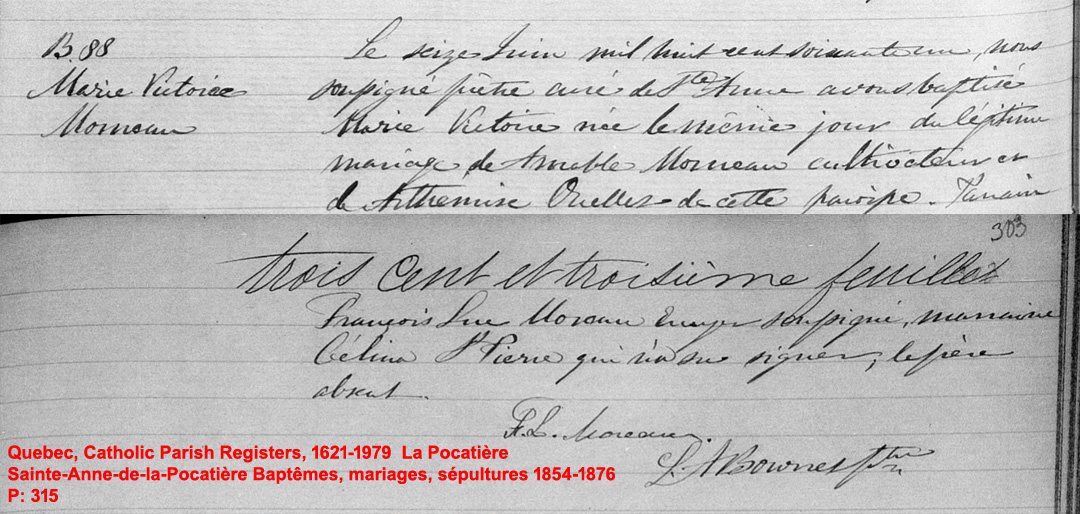 B. 88
Marie Victoire
Morneau
Le seize Juin mil huit cent soixante un, nous
soussigné prêtre curé de Ste Anne avons baptisé
Marie Victoire née le même jour du légitime
mariage de Amable Morneau cultivateur et
de Arthemise Ouellet de cette paroisse. Parrain
303
trois cent et troisième feuillet
François Luc Moreau Ecuyer soussigné, marraine
Célina St Pierre qui n'a su signer, le père
absent.
F. L. Moreau.
L. A. Bournes Ptre
Quebec, Catholic Parish Registers, 1621-1979 La Pocatière
Sainte-Anne-de-la-Pocatière Baptêmes, mariages, sépultures 1854-1876
P: 315